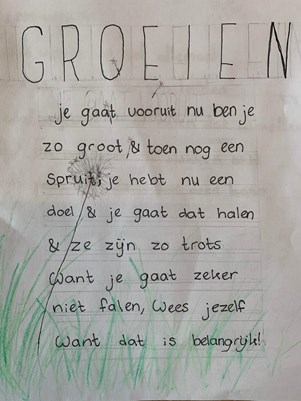 GROEIEN
je gaat vooruit nu ben je
zo groot, & toen nog een
spruit, je hebt nu een
doel & je gaat dat halen
& ze zijn zo trots
Want je gaat zeker
niet falen, Wees jezelf
Want dat is belangrijk!